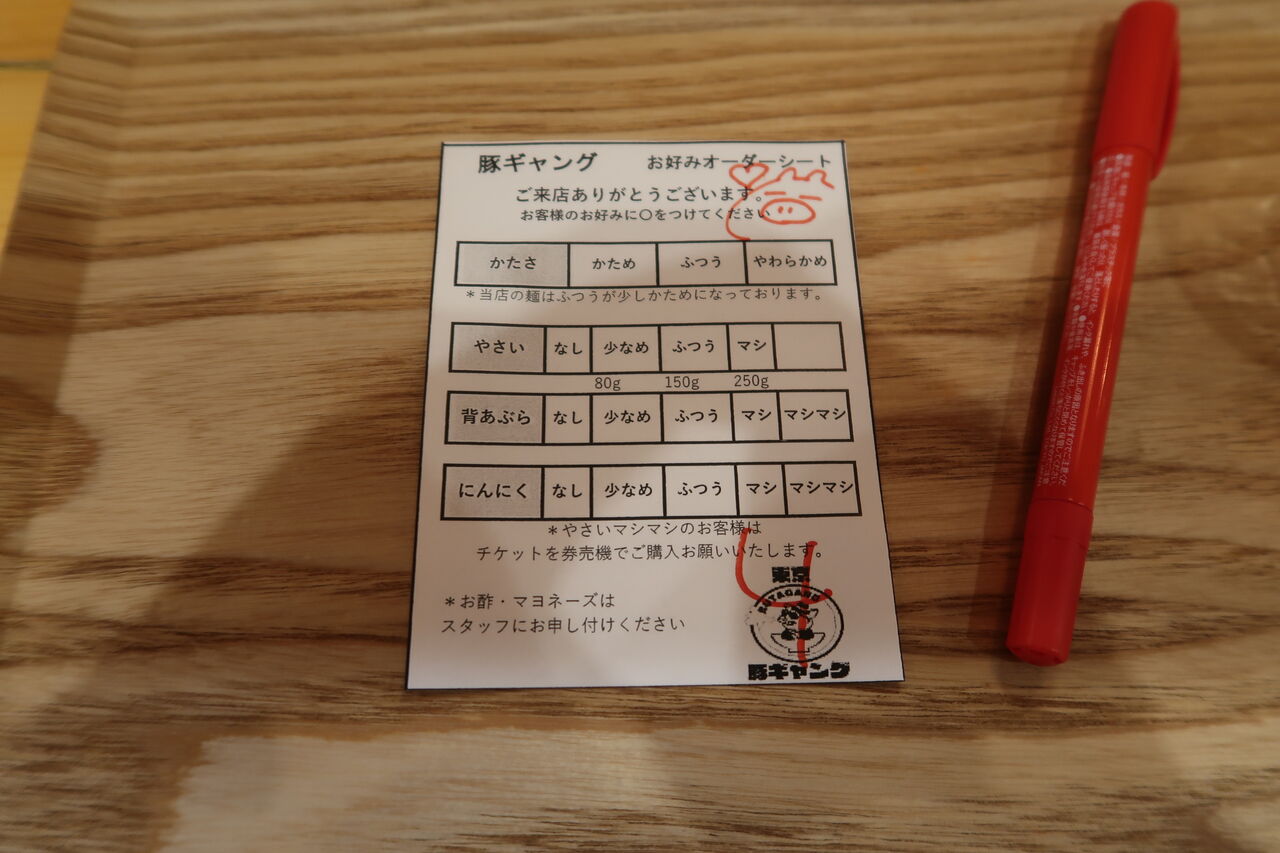 豚ギャング お好みオーダーシート
ご来店ありがとうございます。
お客様のお好みに〇をつけてください
かたさ かため ふつう やわらかめ
＊当店の麺はふつうが少しかためになっております。
やさい なし 少なめ ふつう マシ
80g 150g 250g
背あぶら なし 少なめ ふつう マシ マシマシ
にんにく なし 少なめ ふつう マシ マシマシ
＊やさいマシマシのお客様は
チケットを券売機でご購入お願いいたします。
＊お酢・マヨネーズは
スタッフにお申し付けください
4
東京
BUTAGANG
豚ギャング